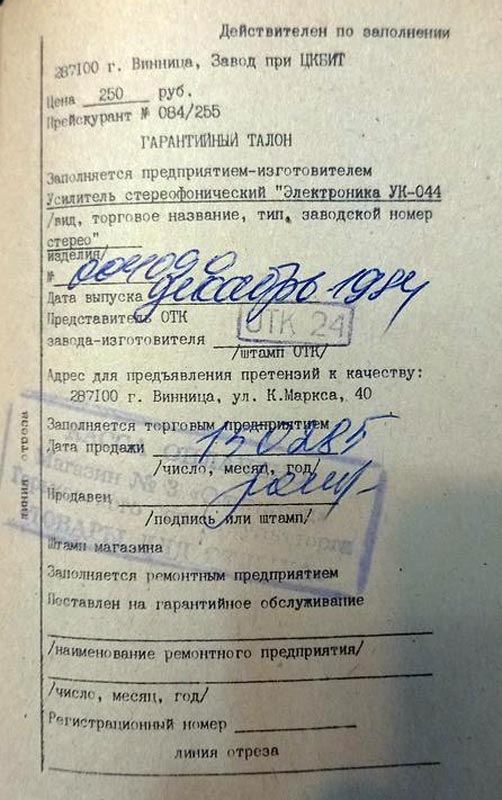 Действителен по заполнении
287100 г. Винница, Завод при ЦКБИТ
Цена 250 руб.
Прейскурант № 084/255
ГАРАНТИЙНЫЙ ТАЛОН
Заполняется предприятием-изготовителем
Усилитель стереофонический "Электроника УК-044
/вид, торговое название, тип, заводской номер
стерео"
изделия/
№ 004090
Дата выпуска декабрь 1984
Представитель ОТК
ОТК 24
завода-изготовителя
/штамп ОТК/
Адрес для предъявления претензий к качеству:
287100 г. Винница, ул. К.Маркса, 40
Заполняется торговым предприятием
Дата продажи 130285
/число, месяц, год/
Магазин № 3
Продавец
/подпись или штамп/
Штамп магазина
Заполняется ремонтным предприятием
Поставлен на гарантийное обслуживание
/наименование ремонтного предприятия/
/число, месяц, год/
Регистрационный номер
линия отреза
линия отреза